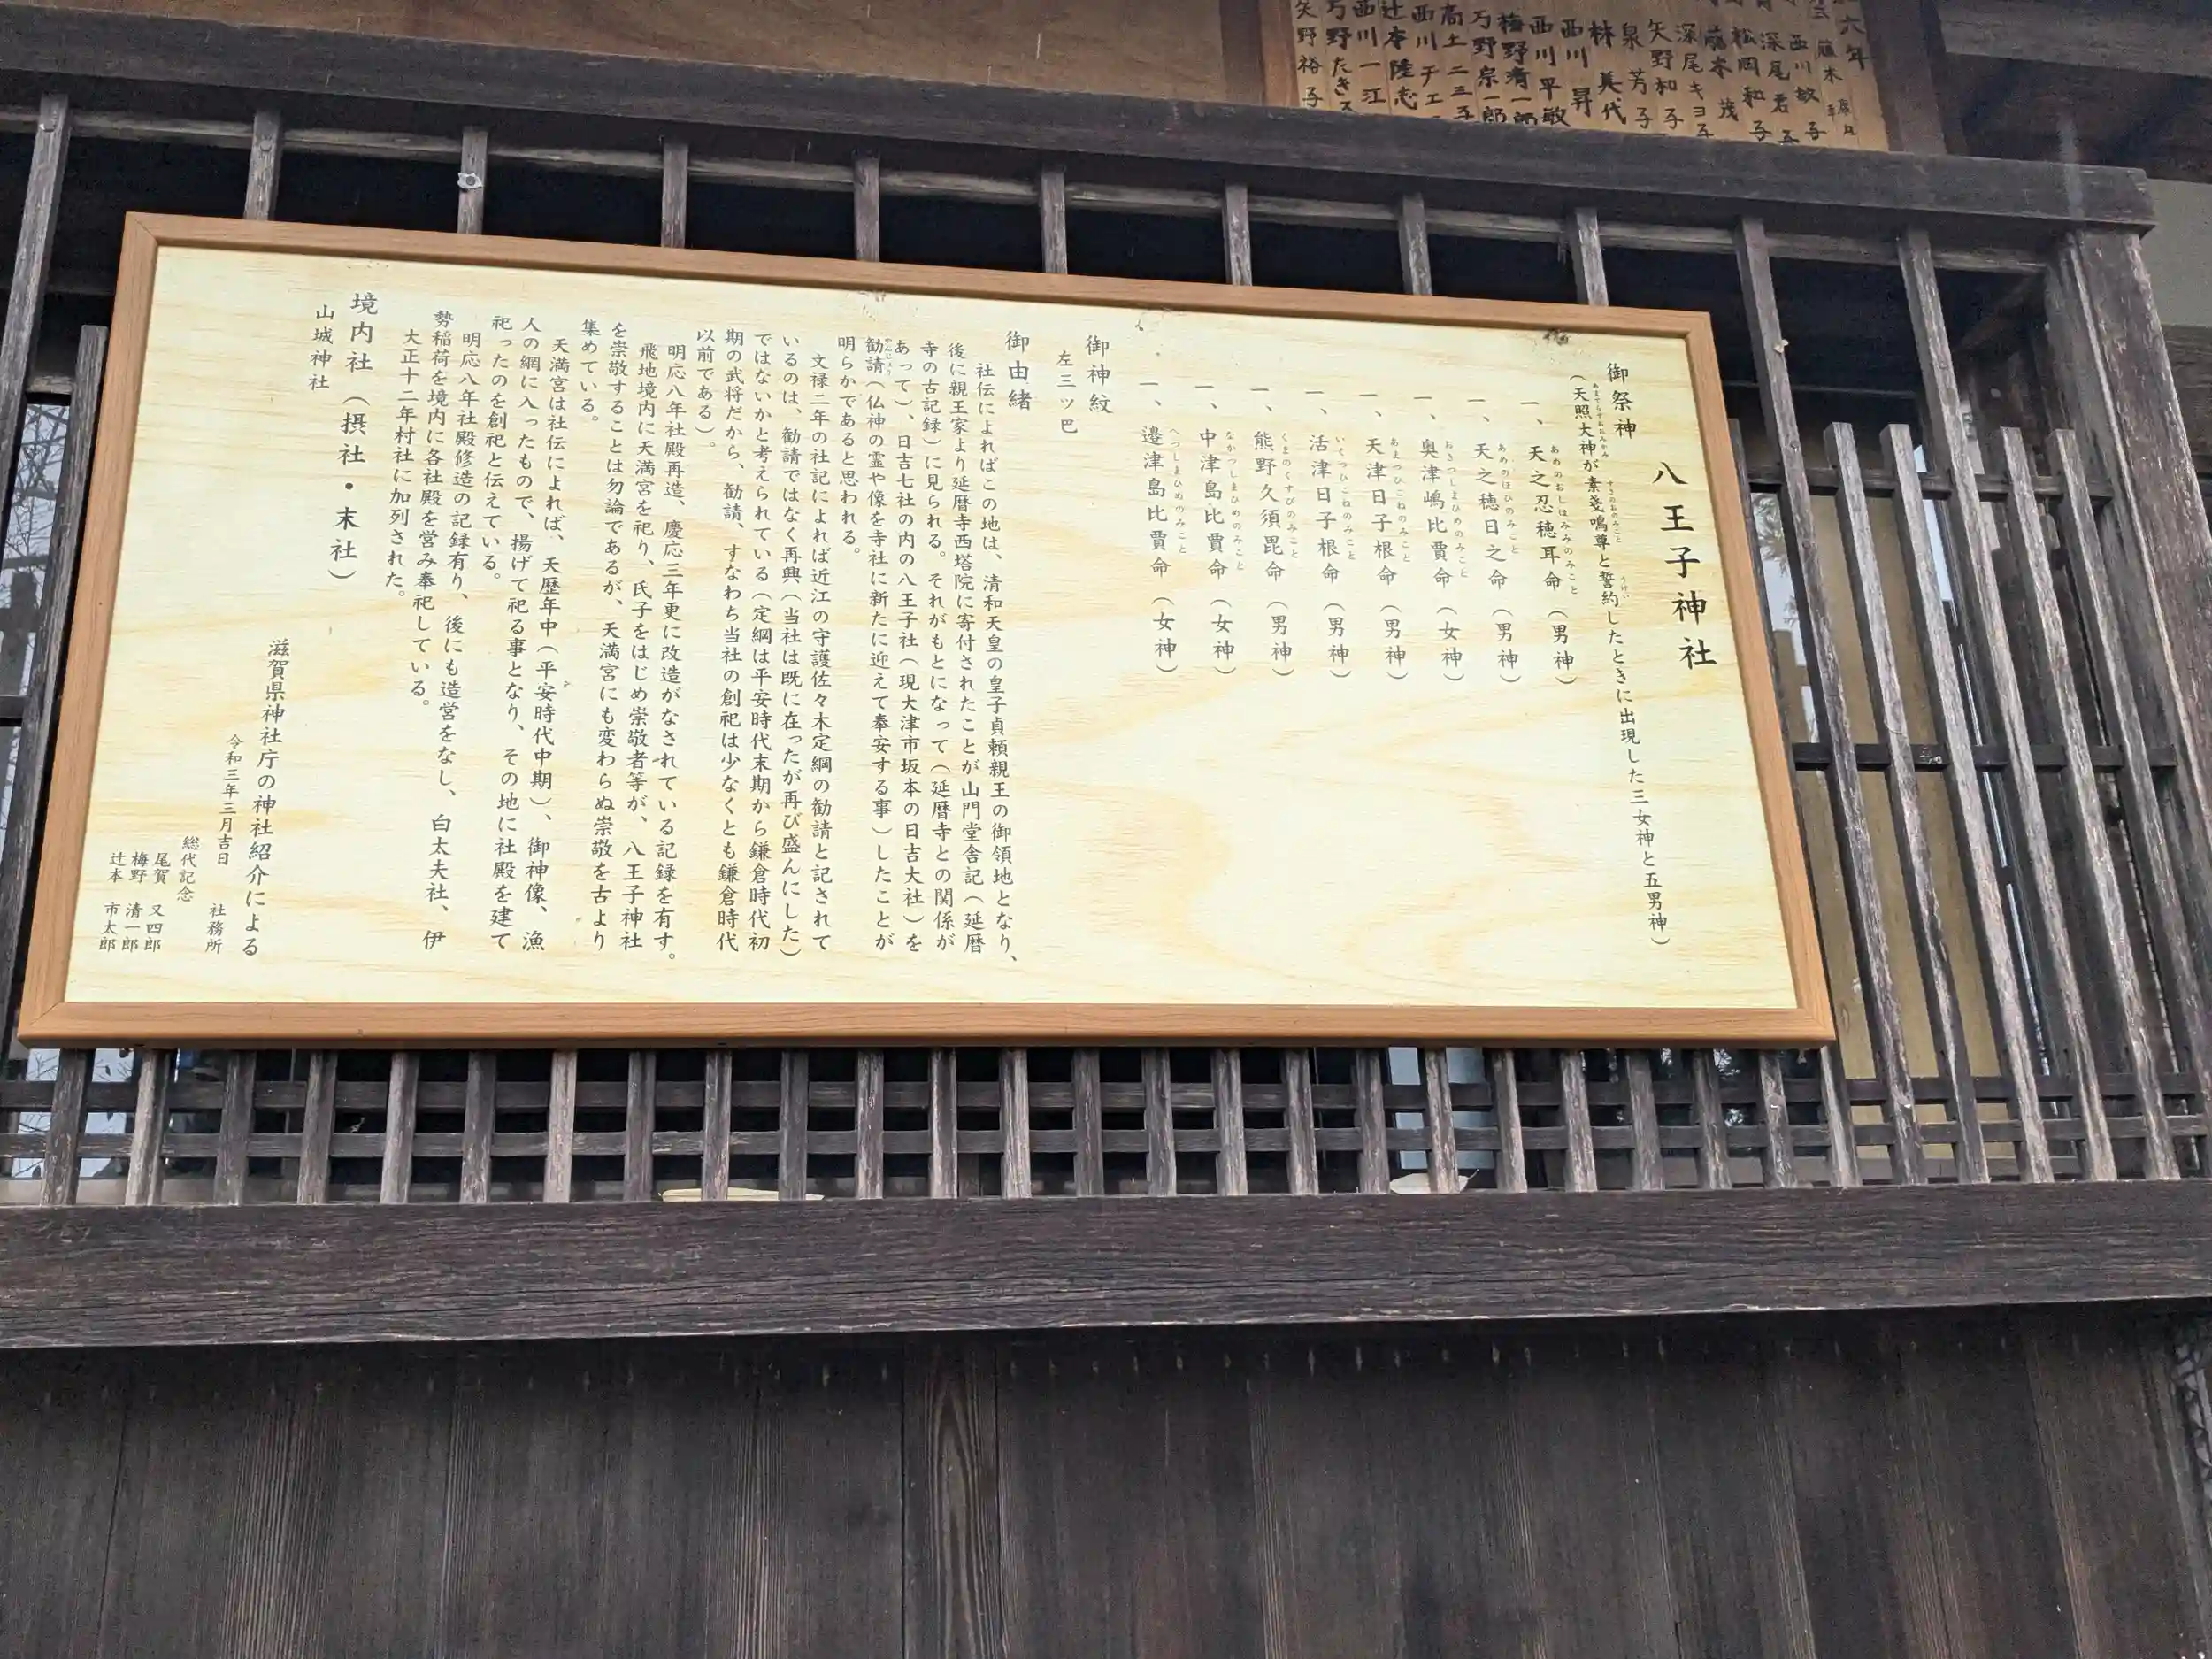 八王子神社
御祭神
（天照大神が素戔嗚尊と誓約したときに出現した三女神と五男神）
一、天之忍穂耳命（男神）
一、天之穂日之命（男神）
一、奥津嶋比賣命（女神）
一、天津日子根命（男神）
一、活津日子根命（男神）
一、熊野久須毘命（男神）
一、中津島比賣命（女神）
一、邉津島比賣命（女神）
御神紋
左三ッ巴
御由緒
社伝によればこの地は、清和天皇の皇子貞頼親王の御領地となり、
後に親王家より延暦寺西塔院に寄付されたことが山門堂舎記（延暦
寺の古記録）に見られる。それがもとになって（延暦寺との関係が
あって）、日吉七社の内の八王子社（現大津市坂本の日吉大社）を
勧請（仏神の霊や像を寺社に新たに迎えて奉安する事）したことが
明らかであると思われる。
文禄二年の社記によれば近江の守護佐々木定綱の勧請と記されて
いるのは、勧請ではなく再興（当社は既に在ったが再び盛んにした）
ではないかと考えられている（定綱は平安時代末期から鎌倉時代初
期の武将だから、勧請、すなわち当社の創祀は少なくとも鎌倉時代
以前である）。
明応八年社殿再造、慶応三年更に改造がなされている記録を有す。
飛地境内に天満宮を祀り、氏子をはじめ崇敬者等が、八王子神社
を崇敬することは勿論であるが、天満宮にも変わらぬ崇敬を古より
集めている。
天満宮は社伝によれば、天歴年中（平安時代中期）、御神像、漁
人の網に入ったもので、揚げて祀る事となり、その地に社殿を建て
祀ったのを創祀と伝えている。
明応八年社殿修造の記録有り、後にも造営をなし、白太夫社、伊
勢稲荷を境内に各社殿を営み奉祀している。
大正十二年村社に加列された。
境内社（摂社・末社）
山城神社
滋賀県神社庁の神社紹介による
令和三年三月吉日　社務所
総代記念
尾賀　又四郎
梅野　清一郎
辻本　市太郎
六年
藤木
西川敏子
深尾君子
松岡和子
藤本　茂
深尾キヨ子
矢野和子
泉　芳子
林　美代
西川　昇
西川平敏
梅野清一郎
万野宗一郎
高土二三子
西川チエ
辻本陸志
西川一江
万野たき
矢野裕子